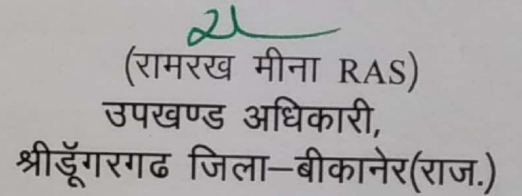 (रामरख मीना RAS)
उपखण्ड अधिकारी,
श्रीडूँगरगढ जिला–बीकानेर(राज.)